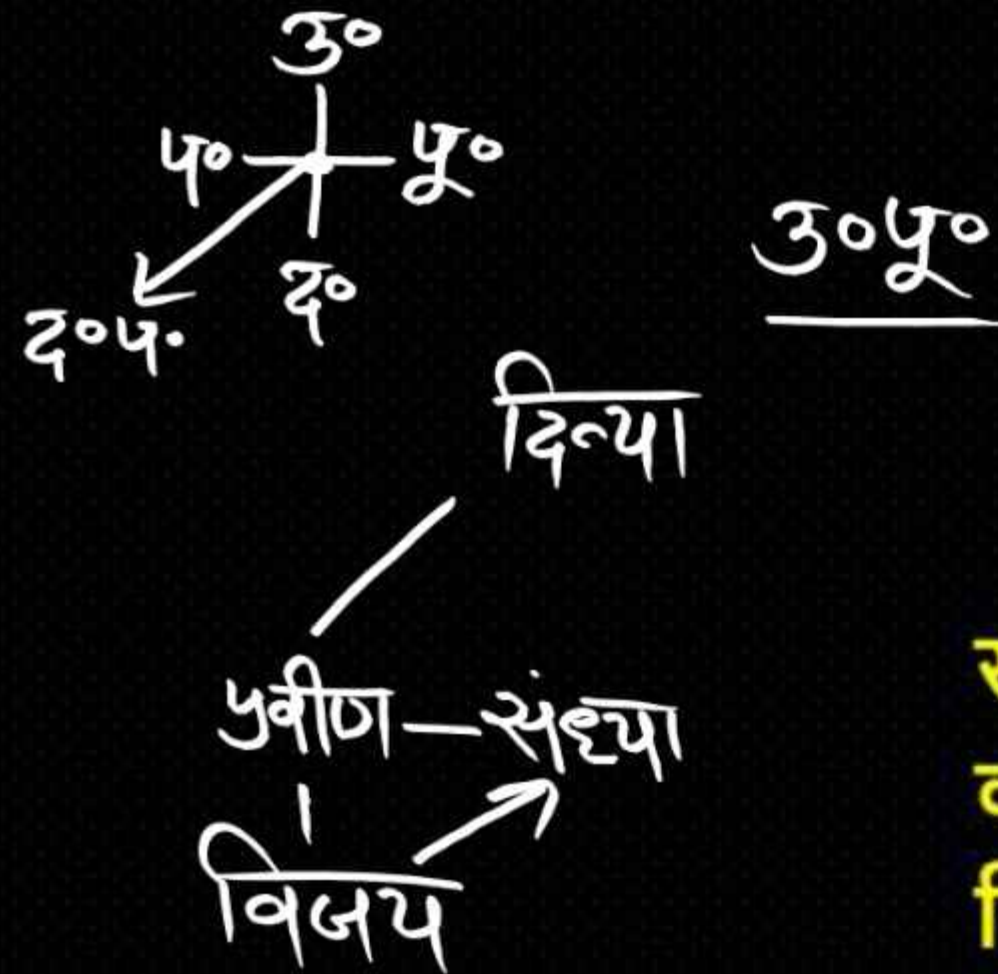 उ०
प० पू०
द०
द०प०
उ०पू०
दिव्या
प्रवीण — संध्या
विजय